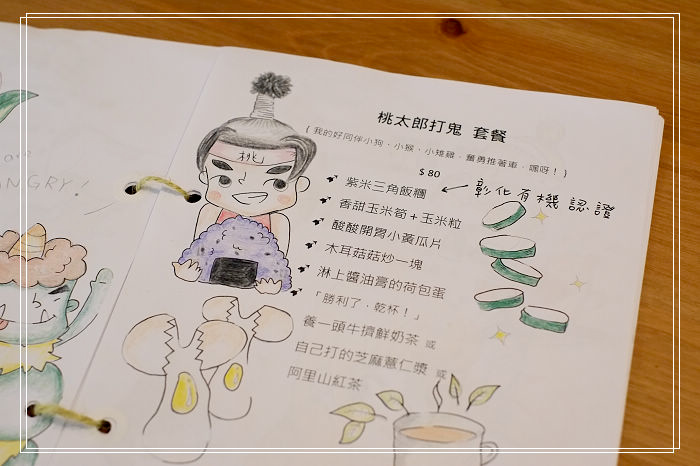 are
NGRY!
桃太郎打鬼 套餐
(我的好同伴小狗、小猴、小雉雞,奮勇推著車,嘿呀!)
$80
桃
紫米三角飯糰 ← 彰化有機認證
香甜玉米筍+玉米粒
酸酸開胃小黃瓜片
木耳菇菇炒一塊
淋上醬油膏的荷包蛋
「勝利了,乾杯!」
養一頭牛擠鮮奶茶 或
自己打的芝麻薏仁漿 或
阿里山紅茶